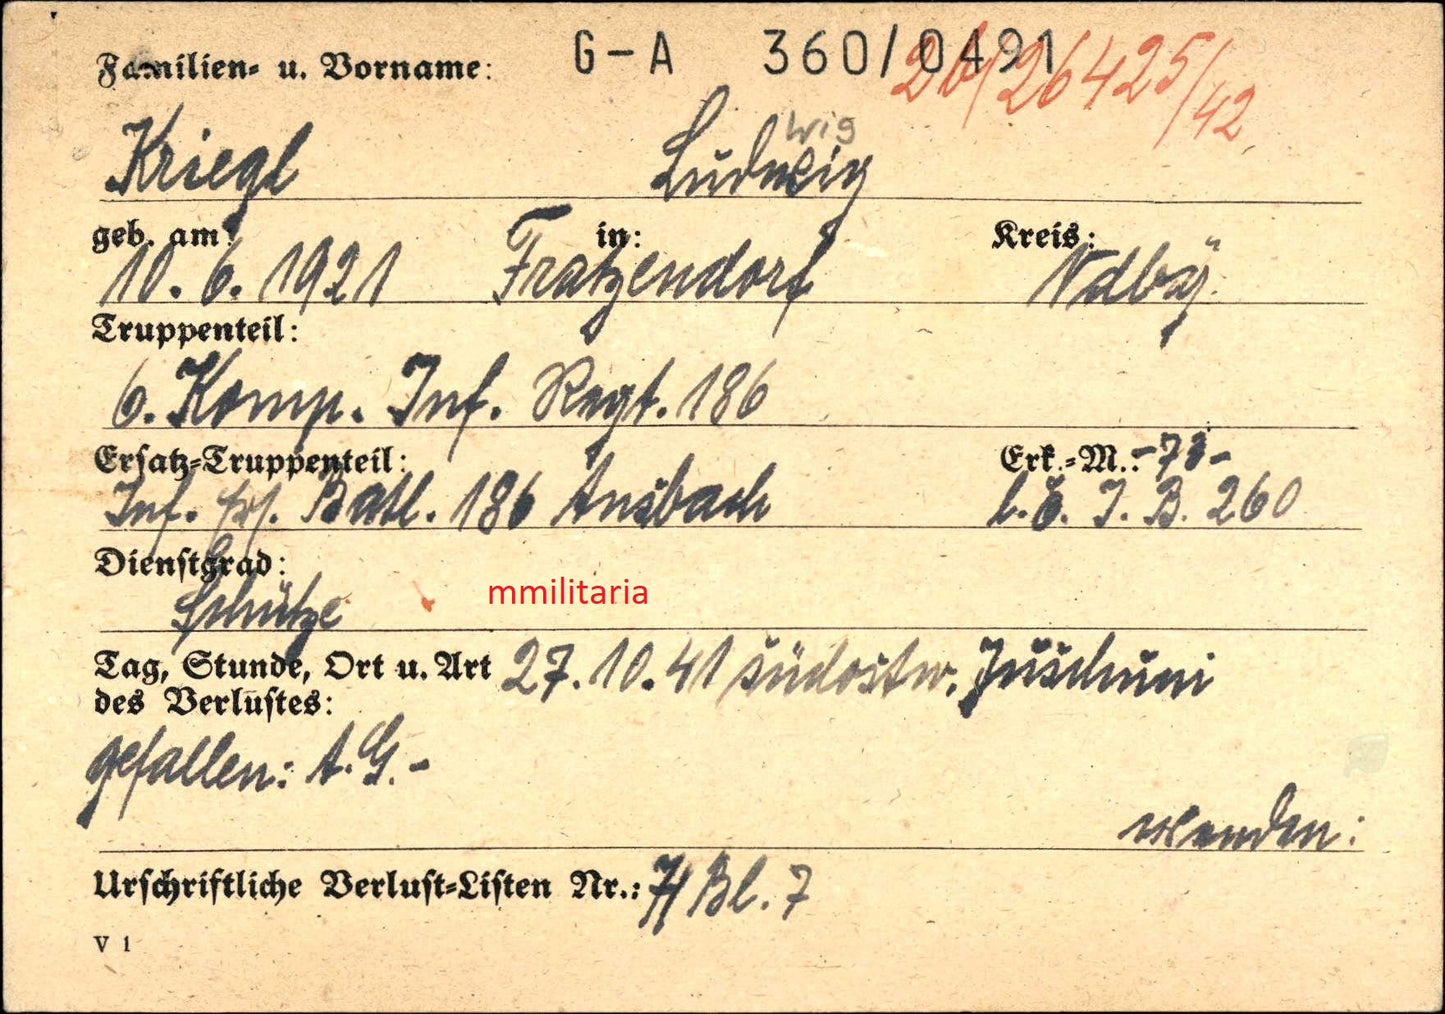 G-A 360/0491
Familien- u. Vorname:
26/26425/42
wig
Kriegl Ludwig
geb. am: in: Kreis:
10. 6. 1921 Fratzendorf Ndbay.
Truppenteil:
6. Komp. Inf. Regt. 186
Ersatz-Truppenteil: Erk.-M.: -73-
Inf. Ers. Batl. 186 Ansbach I. B. 260
Dienstgrad:
Schütze
mmilitaria
Tag, Stunde, Ort u. Art 27. 10. 41 südostw. Juschuni
des Verlustes:
gefallen: A. G. -
wenden:
Urschriftliche Verlust-Listen Nr.: 7/ Bl. 7
V 1